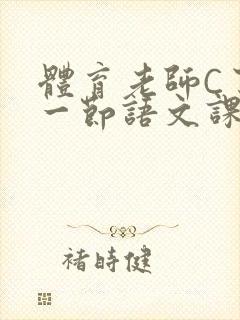 體育老師C了
一節語文課
褚時健